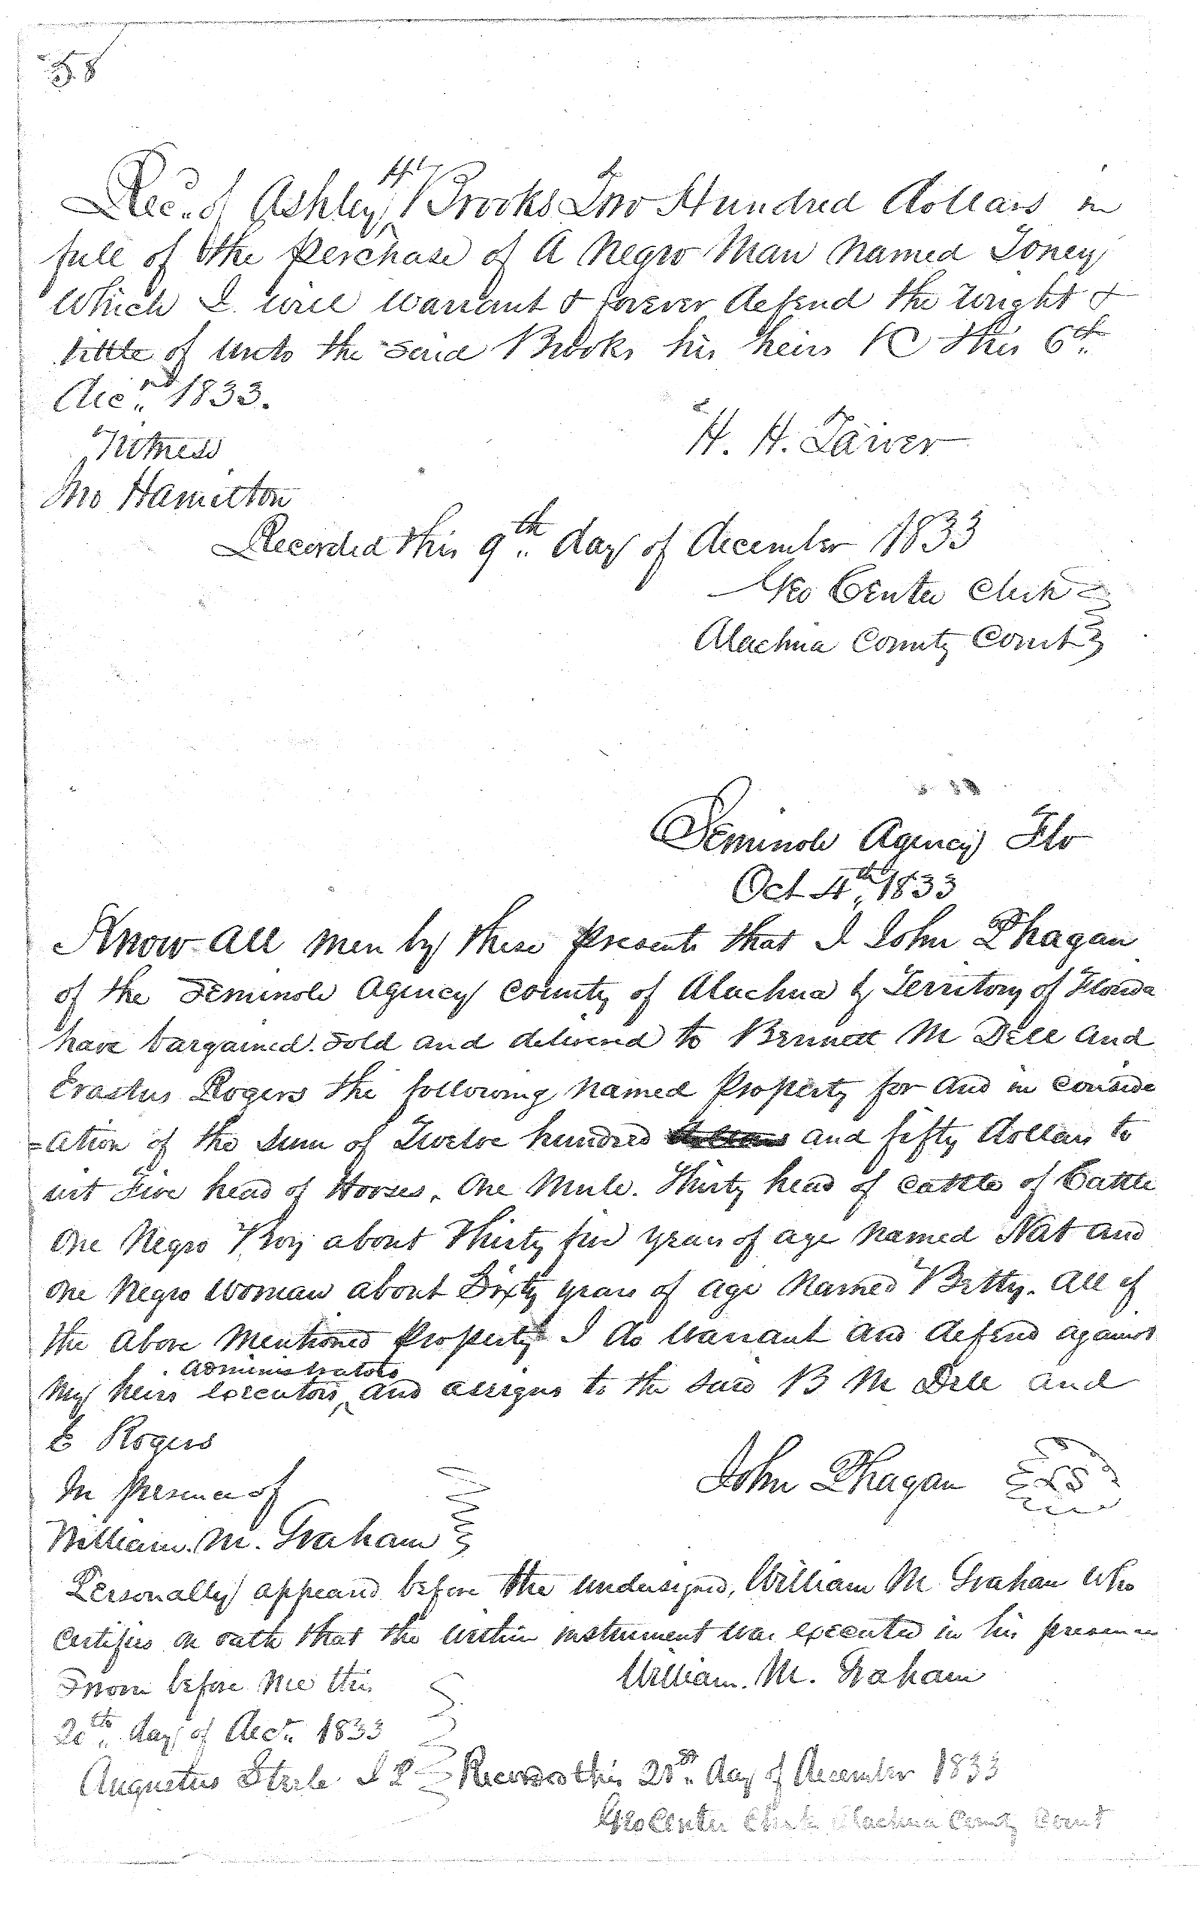 58
Rec.d of Ashley H Brooks Two Hundred dollars in
full of the perchase of A Negro Man named Toney
Which I will warrant & forever defend the wright &
tittle of unto the said Brooks his heirs &C this 6th
Dec.r 1833.
Witness
H. H.
Jno Hamilton
Recorded this 9th day of december 1833
Geo Center Clerk
Alachua County Court
Seminole Agency Flo
Oct 4th 1833
Know all men by these presents that I John Phagan
of the Seminole Agency County of Alachua & Territory of Florida
have bargained. Sold and delivered to Bennett M Dell and
Erastus Rogers the following named property for and in conside
=ation of the Sum of Twelve hundred dollars and fifty dollars to
wit Five head of Horses, One Mule. Thirty head of cattle of Cattle
One Negro Boy about Thirty five years of age named Nat and
One Negro Woman about Sixty years of age Named Betty. All of
the above mentioned property I do warrant and defend against
administrators
My heirs executors, and assigns to the said B M Dell and
E Rogers
In presence of
John Phagan LS
William. M. Graham
Personally appeared before the undersigned, William M Graham who
certifies on oath that the within instrument was executed in his presence
Sworn before me this
William. M. Graham
20th day of Dec.r 1833
Augustus Steele J P
Recorded this day of December 1833
Geo Center Clerk Alachua County Court